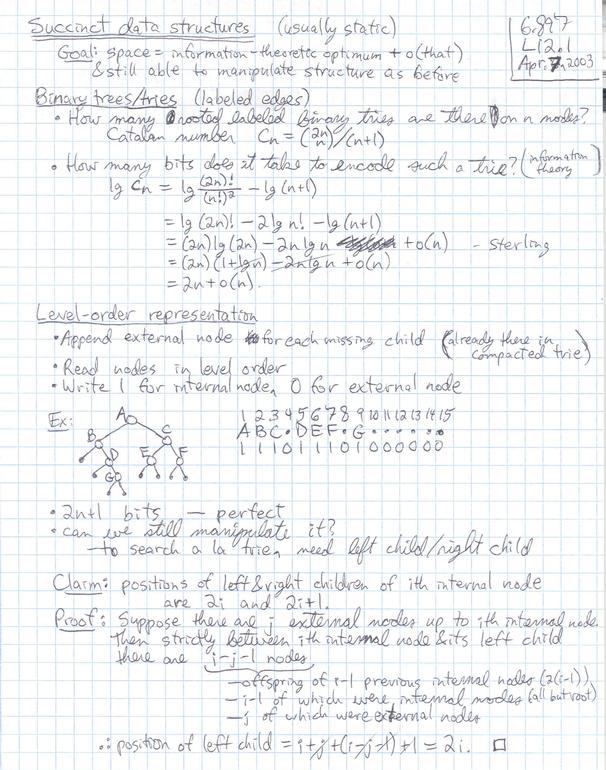 Succinct data structures (usually static)
6.897
L12.1
Apr. 7, 2003
Goal: space = information-theoretic optimum + o(that)
& still able to manipulate structure as before
Binary trees/tries (labeled edges)
• How many rooted labeled binary tries are there on n nodes?
Catalan number Cn = (2n n)/(n+1)
• How many bits does it take to encode such a trie? (information theory)
lg Cn = lg (2n)!/(n!)² - lg(n+1)
= lg (2n)! - 2 lg n! - lg(n+1)
= (2n) lg (2n) - 2n lg n + o(n) - sterling
= (2n)(1+lg n) - 2n lg n + o(n)
= 2n + o(n).
Level-order representation
• Append external node for each missing child (already there in compacted trie)
• Read nodes in level order
• Write 1 for internal node, 0 for external node
Ex:
A
B C
D E F
G
1 2 3 4 5 6 7 8 9 10 11 12 13 14 15
A B C • D E F • G • • • • • •
1 1 1 0 1 1 1 0 1 0 0 0 0 0 0
• 2n+1 bits — perfect
• can we still manipulate it?
— to search a la trie, need left child/right child
Claim: positions of left & right children of ith internal node
are 2i and 2i+1.
Proof: Suppose there are j external nodes up to ith internal node.
Then strictly between ith internal node & its left child
there are i-j-1 nodes
— offspring of i-1 previous internal nodes (2(i-1))
— i-1 of which were internal nodes (all but root)
— j of which were external nodes
∴ position of left child = i+j+(i-j-1)+1 = 2i. □